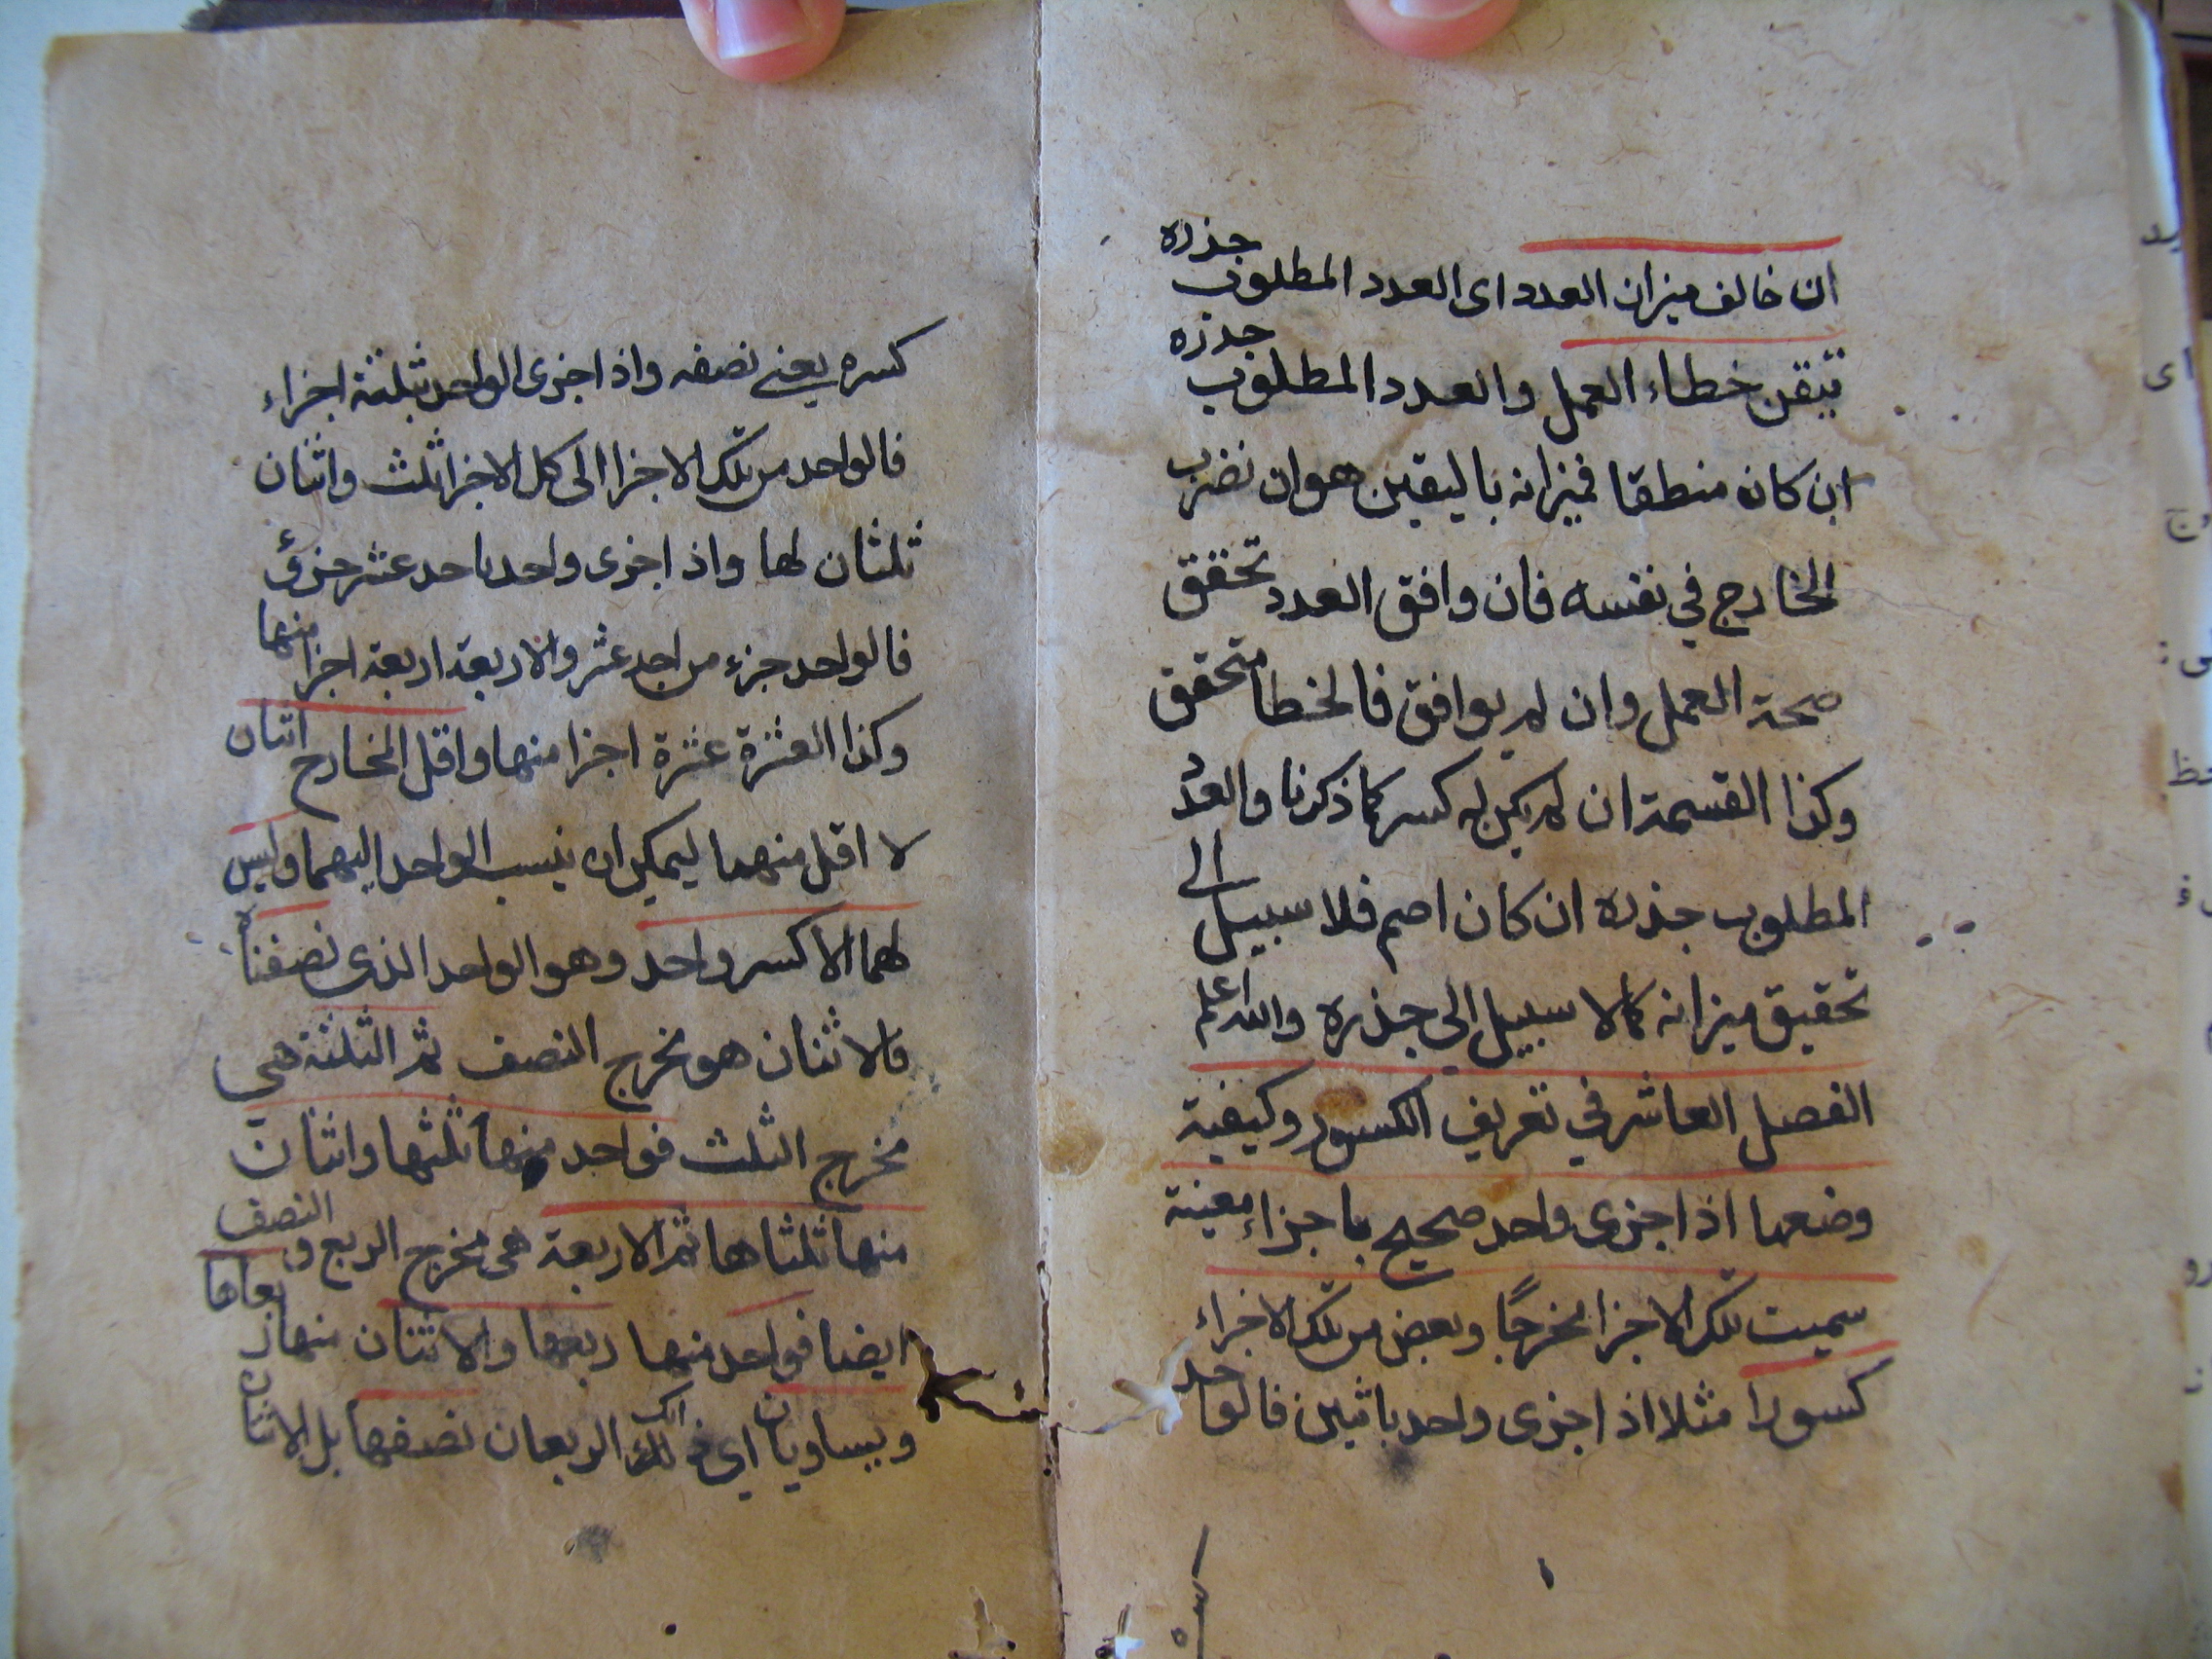 ان خالف ميزان العدد اى العدد المطلوب جذره
تيقن خطاء العمل والعدد المطلوب جذره
ان كان منطقا فميزانه باليقين هو ان نضرب
الخارج في نفسه فان وافق العدد تحقق
صحة العمل وان لم يوافق فالخطا متحقق
وكذا القسمة ان لم يكن له كسر كما ذكرنا والعدد
المطلوب جذره ان كان اصم فلا سبيل الى
تحقيق ميزانه كما لا سبيل الى جذره والله اعلم
الفصل العاشر في تعريف الكسور وكيفية
وضعها اذا جزى واحد صحيح باجزاء معينة
سميت تلك الاجزا مخرجًا وبعض من تلك الاجزاء
كسورا مثلا اذا جزى واحد باثنين فالواحد
كسره
كسره يعنى نصفه واذا جزى الواحد بثلثة اجزاء
فالواحد من تلك الاجزا الى كل الاجزا ثلث واثنان
ثلثان لها واذا جزى واحد باحد عشر جزؤ
فالواحد جزء من احد عشر والاربعة اربعة اجزا منها
وكذا العشرة عشرة اجزا منها واقل المخارج اثنان
لا اقل منهما ليمكن ان ينسب الواحد اليهما وليس
لهما الا كسر واحد وهو الواحد الذى نصفناه
فالاثنان هو مخرج النصف ثم الثلثة هى
مخرج الثلث فواحد منها ثلثها واثنان
منها ثلثاها ثم الاربعة هى مخرج الربع و النصف
ايضا فواحد منها ربعها والاثنان منها ربعاها
ويساويان اى ذلك الربعان نصفها بل الاثنان